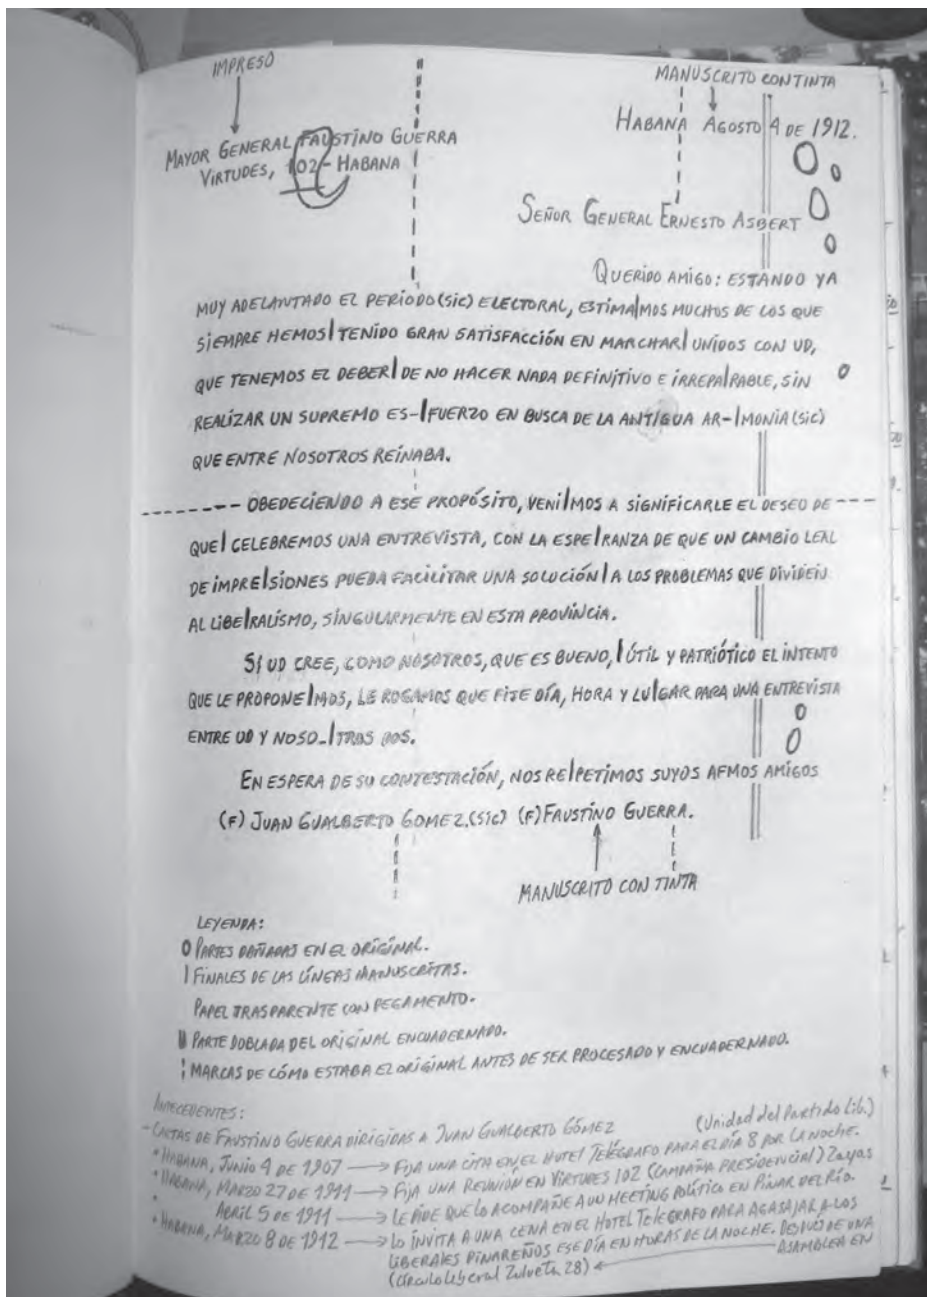 IMPRESO
MANUSCRITO CON TINTA
HABANA AGOSTO 4 DE 1912.
MAYOR GENERAL FAUSTINO GUERRA
VIRTUDES, 102 - HABANA
SEÑOR GENERAL ERNESTO ASBERT
QUERIDO AMIGO: ESTANDO YA
MUY ADELANTADO EL PERÍODO(SIC) ELECTORAL, ESTIMA|MOS MUCHOS DE LOS QUE
SIEMPRE HEMOS| TENIDO GRAN SATISFACCIÓN EN MARCHAR| UNIDOS CON UD,
QUE TENEMOS EL DEBER| DE NO HACER NADA DEFINITIVO E IRREPA|PABLE, SIN
REALIZAR UN SUPREMO ES-|FUERZO EN BUSCA DE LA ANTIGUA AR-|MONIA(SIC)
QUE ENTRE NOSOTROS REINABA.
-------- OBEDECIENDO A ESE PROPÓSITO, VENI|MOS A SIGNIFICARLE EL DESEO DE ---
QUE| CELEBREMOS UNA ENTREVISTA, CON LA ESPE|RANZA DE QUE UN CAMBIO LEAL
DE IMPRE|SIONES PUEDA FACILITAR UNA SOLUCIÓN| A LOS PROBLEMAS QUE DIVIDEN
AL LIBE|RALISMO, SINGULARMENTE EN ESTA PROVINCIA.
SI UD CREE, COMO NOSOTROS, QUE ES BUENO, | ÚTIL Y PATRIÓTICO EL INTENTO
QUE LE PROPONE|MOS, LE ROGAMOS QUE FIJE DÍA, HORA Y LU|GAR PARA UNA ENTREVISTA
ENTRE UD Y NOSO-|TROS DOS.
EN ESPERA DE SU CONTESTACIÓN, NOS RE|PETIMOS SUYOS AFMOS AMIGOS
(F) JUAN GUALBERTO GOMEZ.(SIC) (F) FAUSTINO GUERRA.
MANUSCRITO CON TINTA
LEYENDA:
O PARTES DAÑADAS EN EL ORIGINAL.
| FINALES DE LAS LÍNEAS MANUSCRITAS.
PAPEL TRASPARENTE CON PEGAMENTO.
|| PARTE DOBLADA DEL ORIGINAL ENCUADERNADO.
¦ MARCAS DE CÓMO ESTABA EL ORIGINAL ANTES DE SER PROCESADO Y ENCUADERNADO.
ANTECEDENTES:
- CARTAS DE FAUSTINO GUERRA DIRIGIDAS A JUAN GUALBERTO GÓMEZ (Unidad del Partido Lib.)
* HABANA, JUNIO 4 DE 1907 → FIJA UNA CITA EN EL HOTEL TELÉGRAFO PARA EL DÍA 8 POR LA NOCHE.
* HABANA, MARZO 27 DE 1911 → FIJA UNA REUNIÓN EN VIRTUDES 102 (CAMPAÑA PRESIDENCIAL) Zayas
* ABRIL 5 DE 1911 → LE PIDE QUE LO ACOMPAÑE A UN MEETING POLÍTICO EN PINAR DEL RÍO.
* HABANA, MARZO 8 DE 1912 → LO INVITA A UNA CENA EN EL HOTEL TELÉGRAFO PARA AGASAJAR A LOS
LIBERALES PINAREÑOS ESE DÍA EN HORAS DE LA NOCHE. DESPUÉS DE UNA
(Círculo Liberal Zulueta 28) ← ASAMBLEA EN